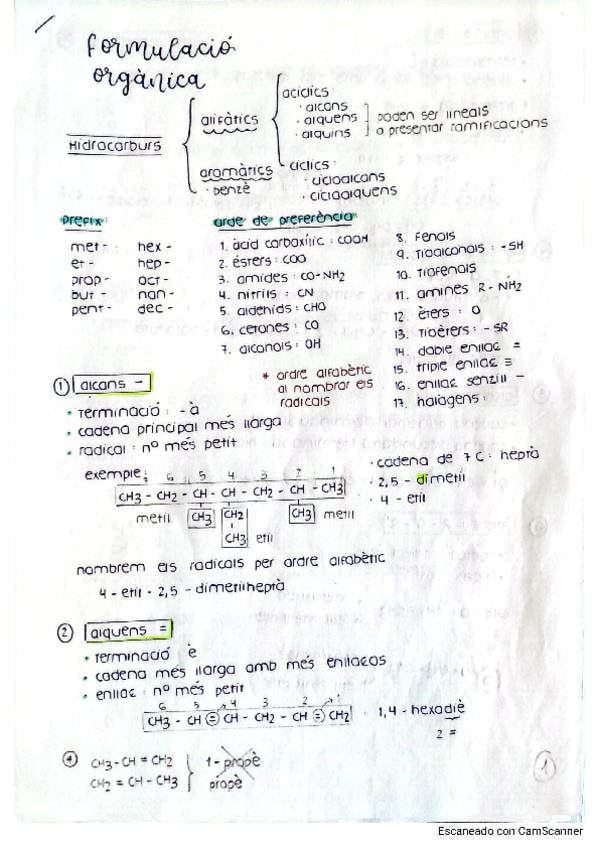 formulació
orgànica
Hidrocarburs
alifàtics
acíclics:
· alcans
· alquens
· alquins
poden ser lineals
o presentar ramificacions
cíclics
· cicloalcans
· cicloalquens
aromàtics
· benzè
prefix:
met-
et-
prop-
but-
pent-
hex-
hep-
oct-
nan-
dec-
orde de preferència
1. àcid carboxílic : COOH
2. ésters: COO
3. amides : CO-NH2
4. nitrils : CN
5. aldehids : CHO
6. cetones : CO
7. alcohols : OH
8. Fenols
9. Tioalcohols : -SH
10. Tiofenols
11. amines R-NH2
12 èters : O
13. Tioèters : -SR
14. doble enllaç =
15. triple enllaç ≡
16. enllaç senzill -
17. halògens:
* ordre alfabètic
al nombrar els
radicals
1 alcans -
• terminació : -à
• cadena principal més llarga
• radical : nº més petit
exemple: 6 5 4 3 2 1
CH3 - CH2 - CH - CH - CH2 - CH - CH3
metil CH3 CH2 CH3 metil
CH3 etil
· cadena de 7 C : heptà
· 2,5 - dimetil
· 4 - etil
nombrem els radicals per ordre alfabètic
4 - etil - 2,5 - dimetilheptà
2 alquens =
• terminació è
• cadena més llarga amb més enllaços
• enllaç : nº més petit
6 5 4 3 2 1
CH3 - CH = CH - CH2 - CH = CH2
· 1,4 - hexadiè
2 =
CH3 - CH = CH2
CH2 = CH - CH3
1 - propè
propè
1
Escaneado con CamScanner